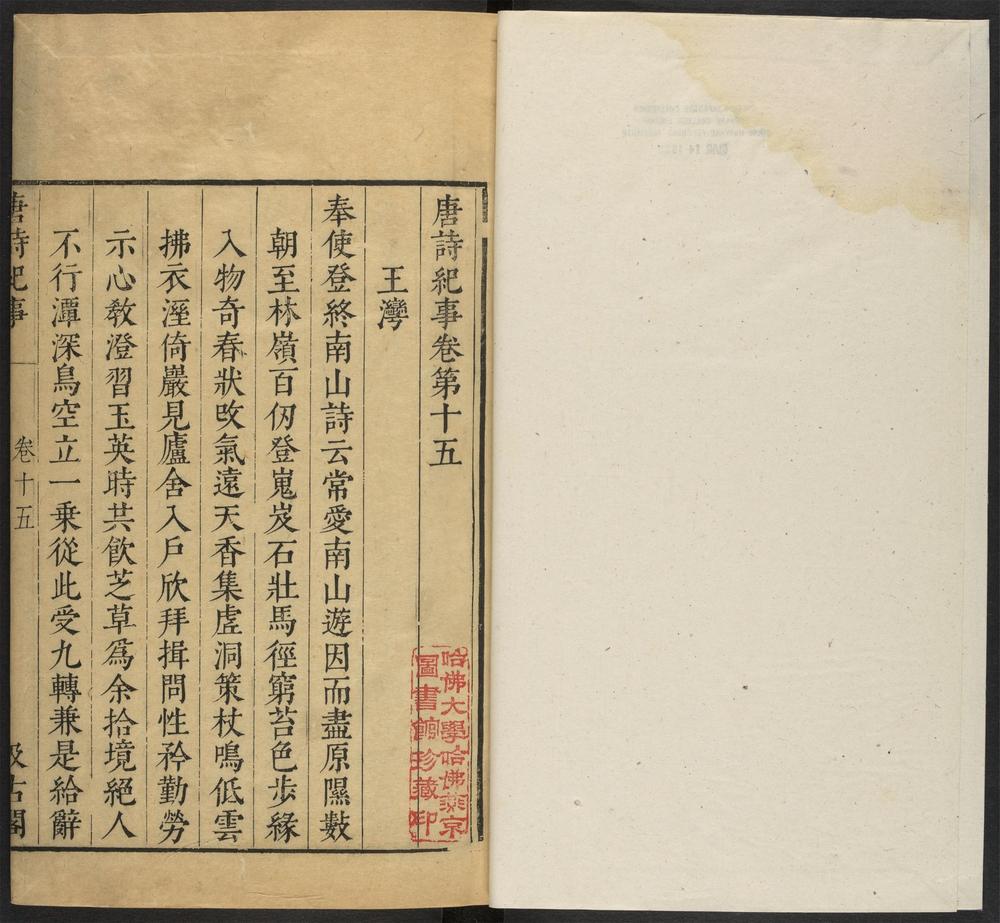 唐詩紀事卷第十五
王灣
奉使登終南山詩云常愛南山遊因而盡原隰數
朝至林嶺百仞登嵬岌石壯馬徑窮苔色步緣
入物奇春狀改氣遠天香集虗洞策杖鳴低雲
拂衣溼倚巖見廬舍入戶欣拜揖問性矜勤勞
示心教澄習玉英時共飮芝草爲余拾境絕人
不行潭深鳥空立一乗從此受九轉兼是給辭
唐詩紀事
卷十五
汲古閣
哈佛大學哈佛燕京
圖書館珍藏印